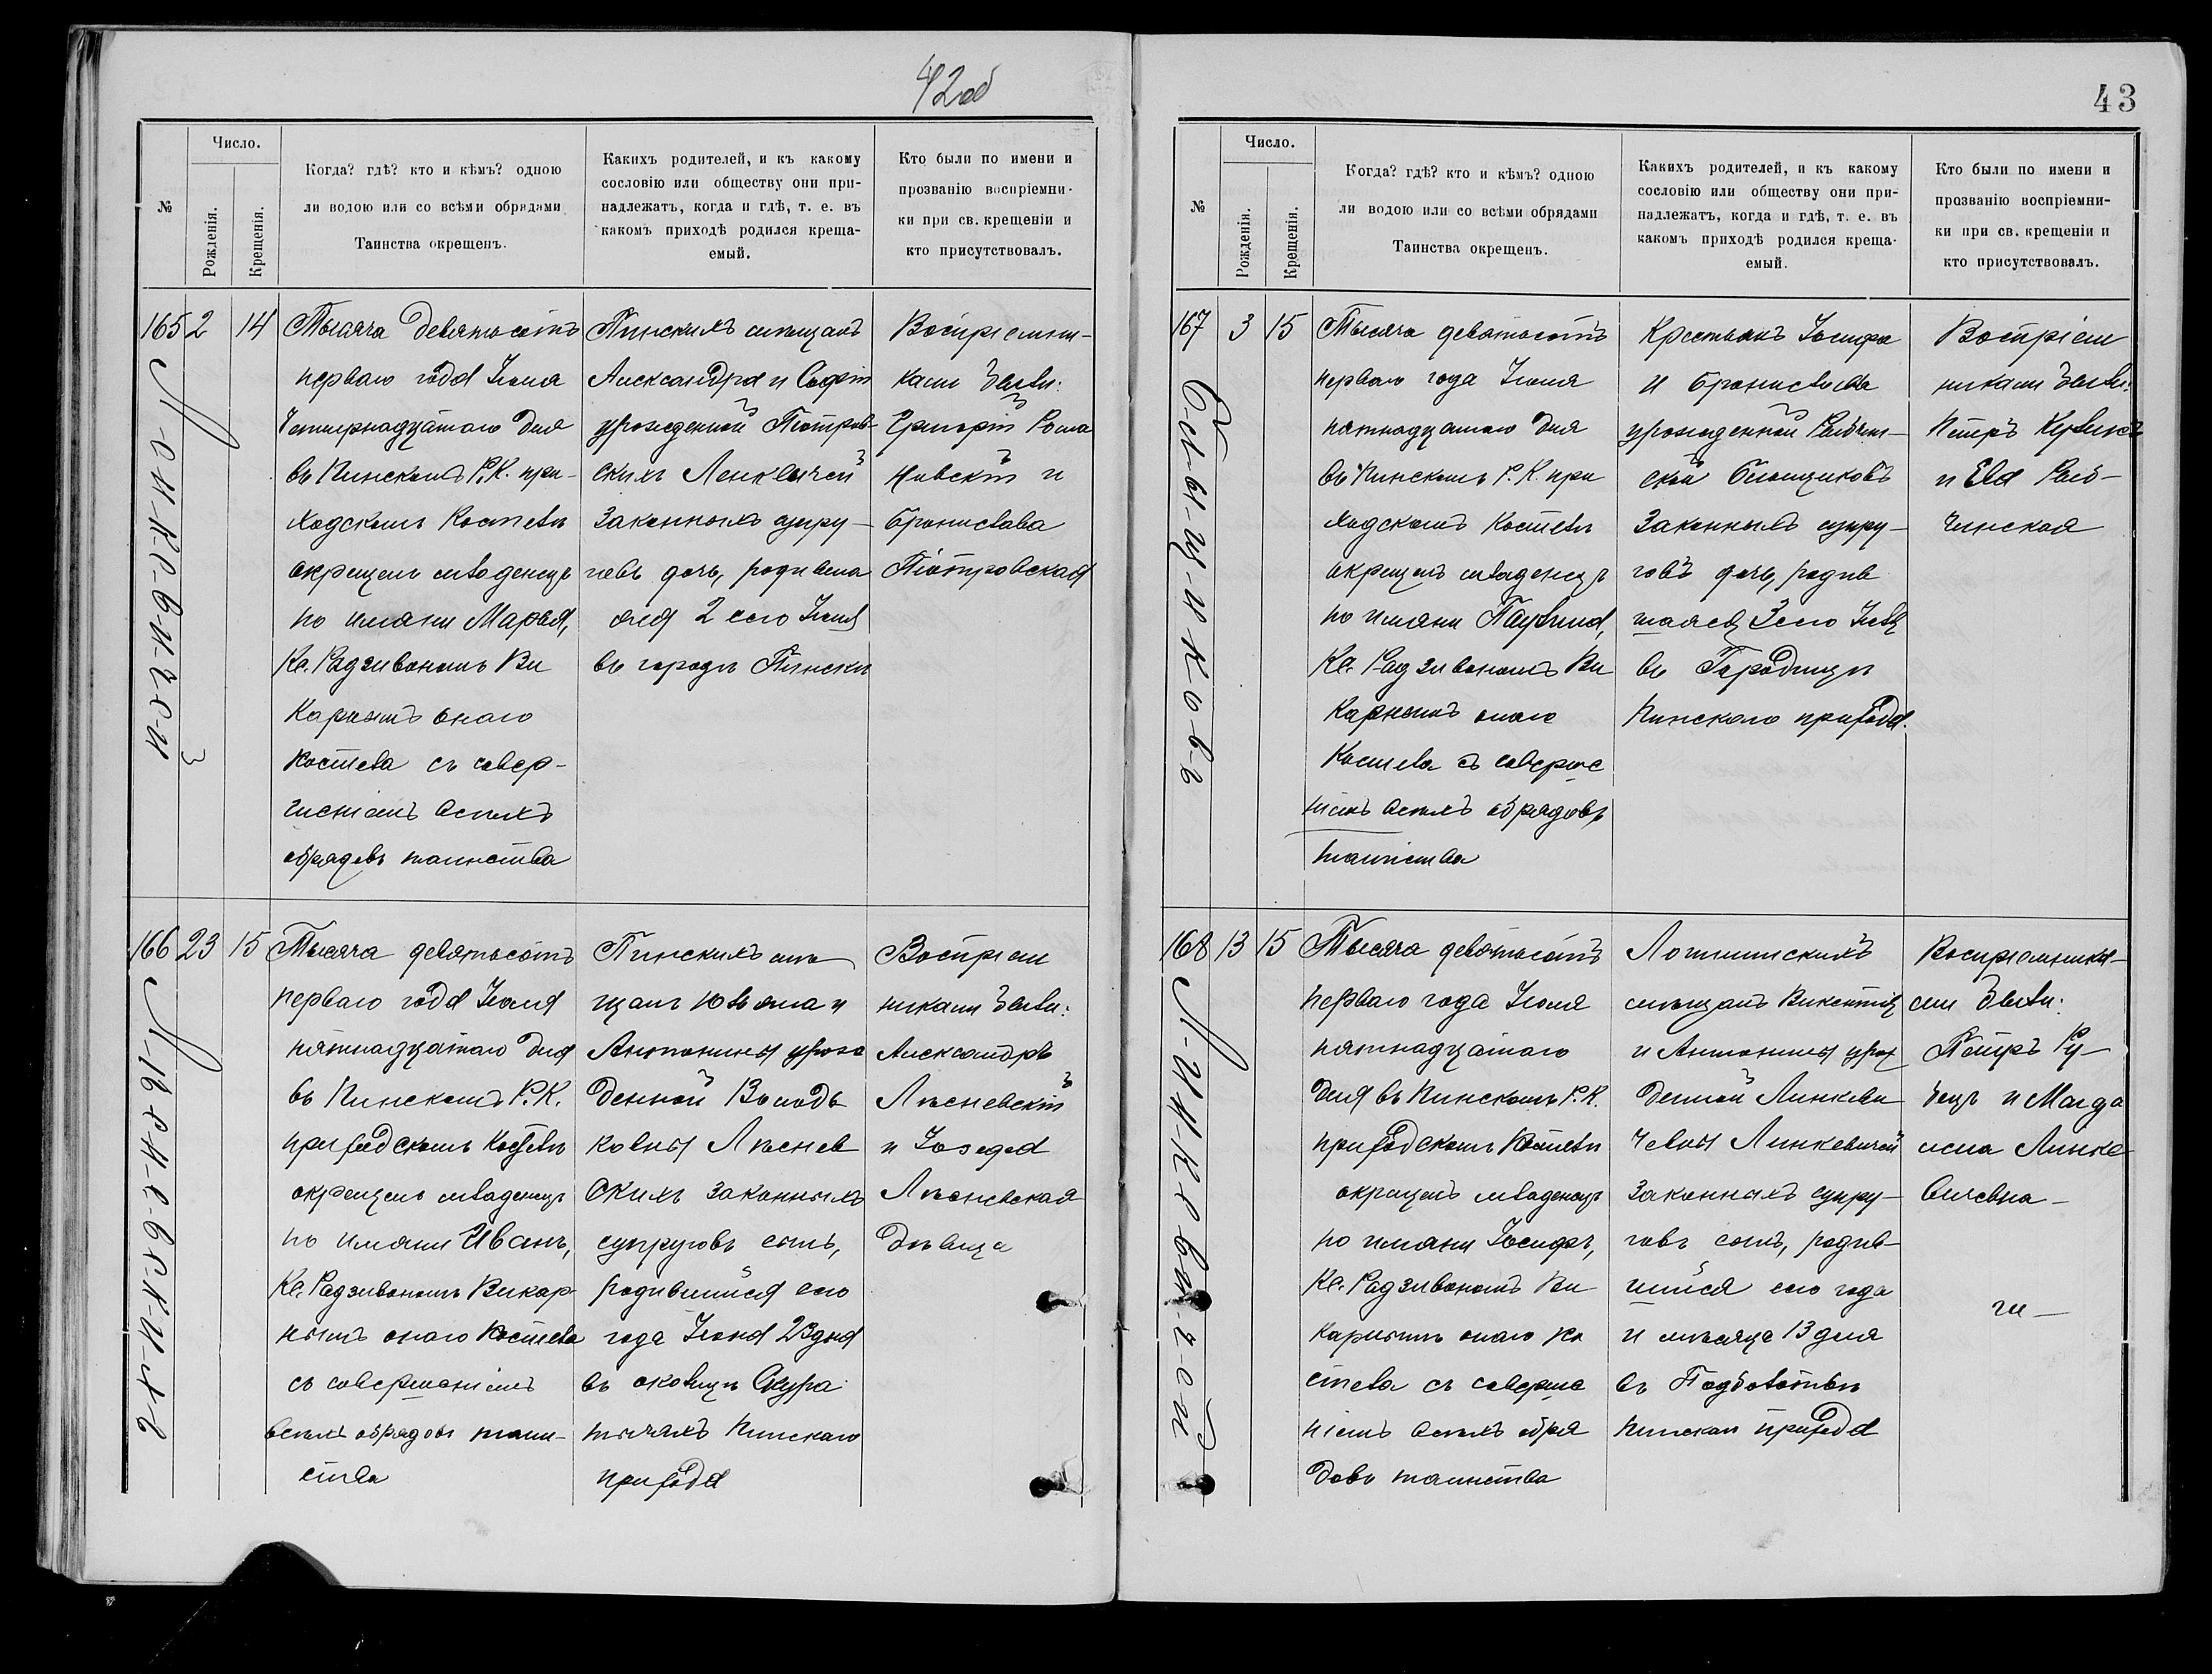 42об
№
Число.
Рожденія.
Крещенія.
Когда? гдѣ? кто и кѣмъ? одною
ли водою или со всѣми обрядами
Таинства окрещенъ.
Какихъ родителей, и къ какому
сословію или обществу они при-
надлежатъ, когда и гдѣ, т. е. въ
какомъ приходѣ родился креща-
емый.
Кто были по имени и
прозванію воспріемни-
ки при св. крещеніи и
кто присутствовалъ.
165
2
14
Тысяча девятьсотъ
перваго года Іюля
четырнадцатаго дня
въ Пинскомъ Р. К. при-
ходскомъ костелѣ
окрещенъ младенецъ
по имяни Марья,
Кс. Радзивономъ Ви
карнымъ онаго
костела съ совер-
шеніемъ всѣхъ
обрядовъ таинства
Пинскихъ мѣщанъ
Александра и Софіи
урожденной Піотров-
скихъ
законныхъ супру-
говъ дочь, родивша
аяся 2 сего Іюля
въ городѣ Пинскѣ
Воспріемни-
ками были:
Григорій Рома
новскій и
Бронислава
Піотровская
166
23
15
Тысяча девятьсотъ
перваго года Іюля
пятнадцатаго дня
въ Пинскомъ Р. К.
приходскомъ костелѣ
окрещенъ младенецъ
по имяни Иванъ,
Кс. Радзивономъ Викар
нымъ онаго костела
съ совершеніемъ
всѣхъ обрядовъ таин-
ства
Пинскихъ мѣ
щанъ Юльяна и
Антонины урож
денной Володь
ковны Лѣснев
скихъ законныхъ
супруговъ сынъ,
родившійся сего
года Іюня 23 дня
въ околицѣ Скура
тычахъ Пинскаго
прихода
Воспріем
никами были:
Александръ
Лѣсневскій
и
Лѣсневская
дѣвица
43
№
Число.
Рожденія.
Крещенія.
Когда? гдѣ? кто и кѣмъ? одною
ли водою или со всѣми обрядами
Таинства окрещенъ.
Какихъ родителей, и къ какому
сословію или обществу они при-
надлежатъ, когда и гдѣ, т. е. въ
какомъ приходѣ родился креща-
емый.
Кто были по имени и
прозванію воспріемни-
ки при св. крещеніи и
кто присутствовалъ.
167
3
15
Тысяча девятьсотъ
перваго года Іюля
пятнадцатаго дня
въ Пинскомъ Р. К. при
ходскомъ костелѣ
окрещенъ младенецъ
по имяни Паулина,
Кс. Радзивономъ Ви
карнымъ онаго
костела съ соверше
ніемъ всѣхъ обрядовъ
таинства
Крестьянъ Іосифа
и Брониславы
урожденной
законныхъ супру-
говъ дочь, родив
шаяся 3 сего Іюля
въ Городищѣ
Пинскаго прихода.
Воспріем
никами были:
Петръ
и Ева
168
13
15
Тысяча девятьсотъ
перваго года Іюля
пятнадцатаго
дня въ Пинскомъ Р. К.
приходскомъ костелѣ
окрещенъ младенецъ
по имяни Іосифъ,
Кс. Радзивономъ Ви
карнымъ онаго ко
стела съ соверше
ніемъ всѣхъ обря
довъ таинства
Логишинскихъ
мѣщанъ Викентія
и Антонины урож
денной Линкеви
чевны Линкевичей
законныхъ супру-
говъ сынъ, родив-
шійся сего года
и мѣсяца 13 дня
въ Подболотьѣ
Пинскаго прихода
Воспріемника-
ми были:
Петръ Ку-
бецъ и Магда
лена Линке
вичевна
Линкевичей